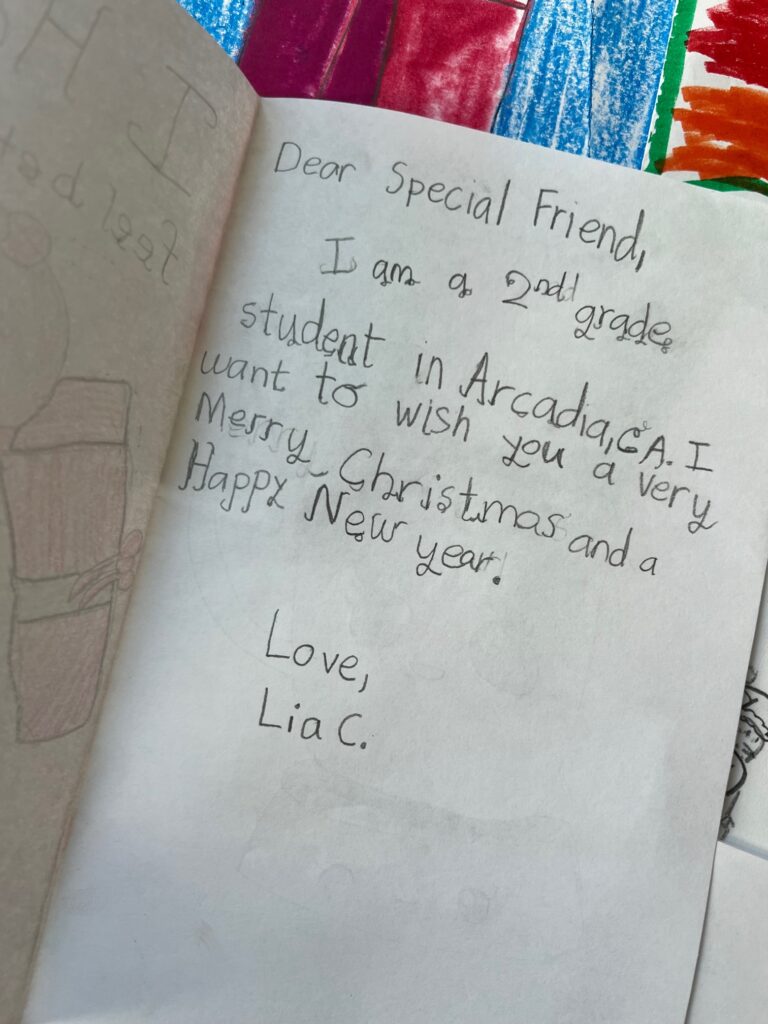 Dear Special Friend,
I am a 2nd grade
student in Arcadia, CA. I
want to wish you a very
Merry Christmas and a
Happy New year.
Love,
Lia C.